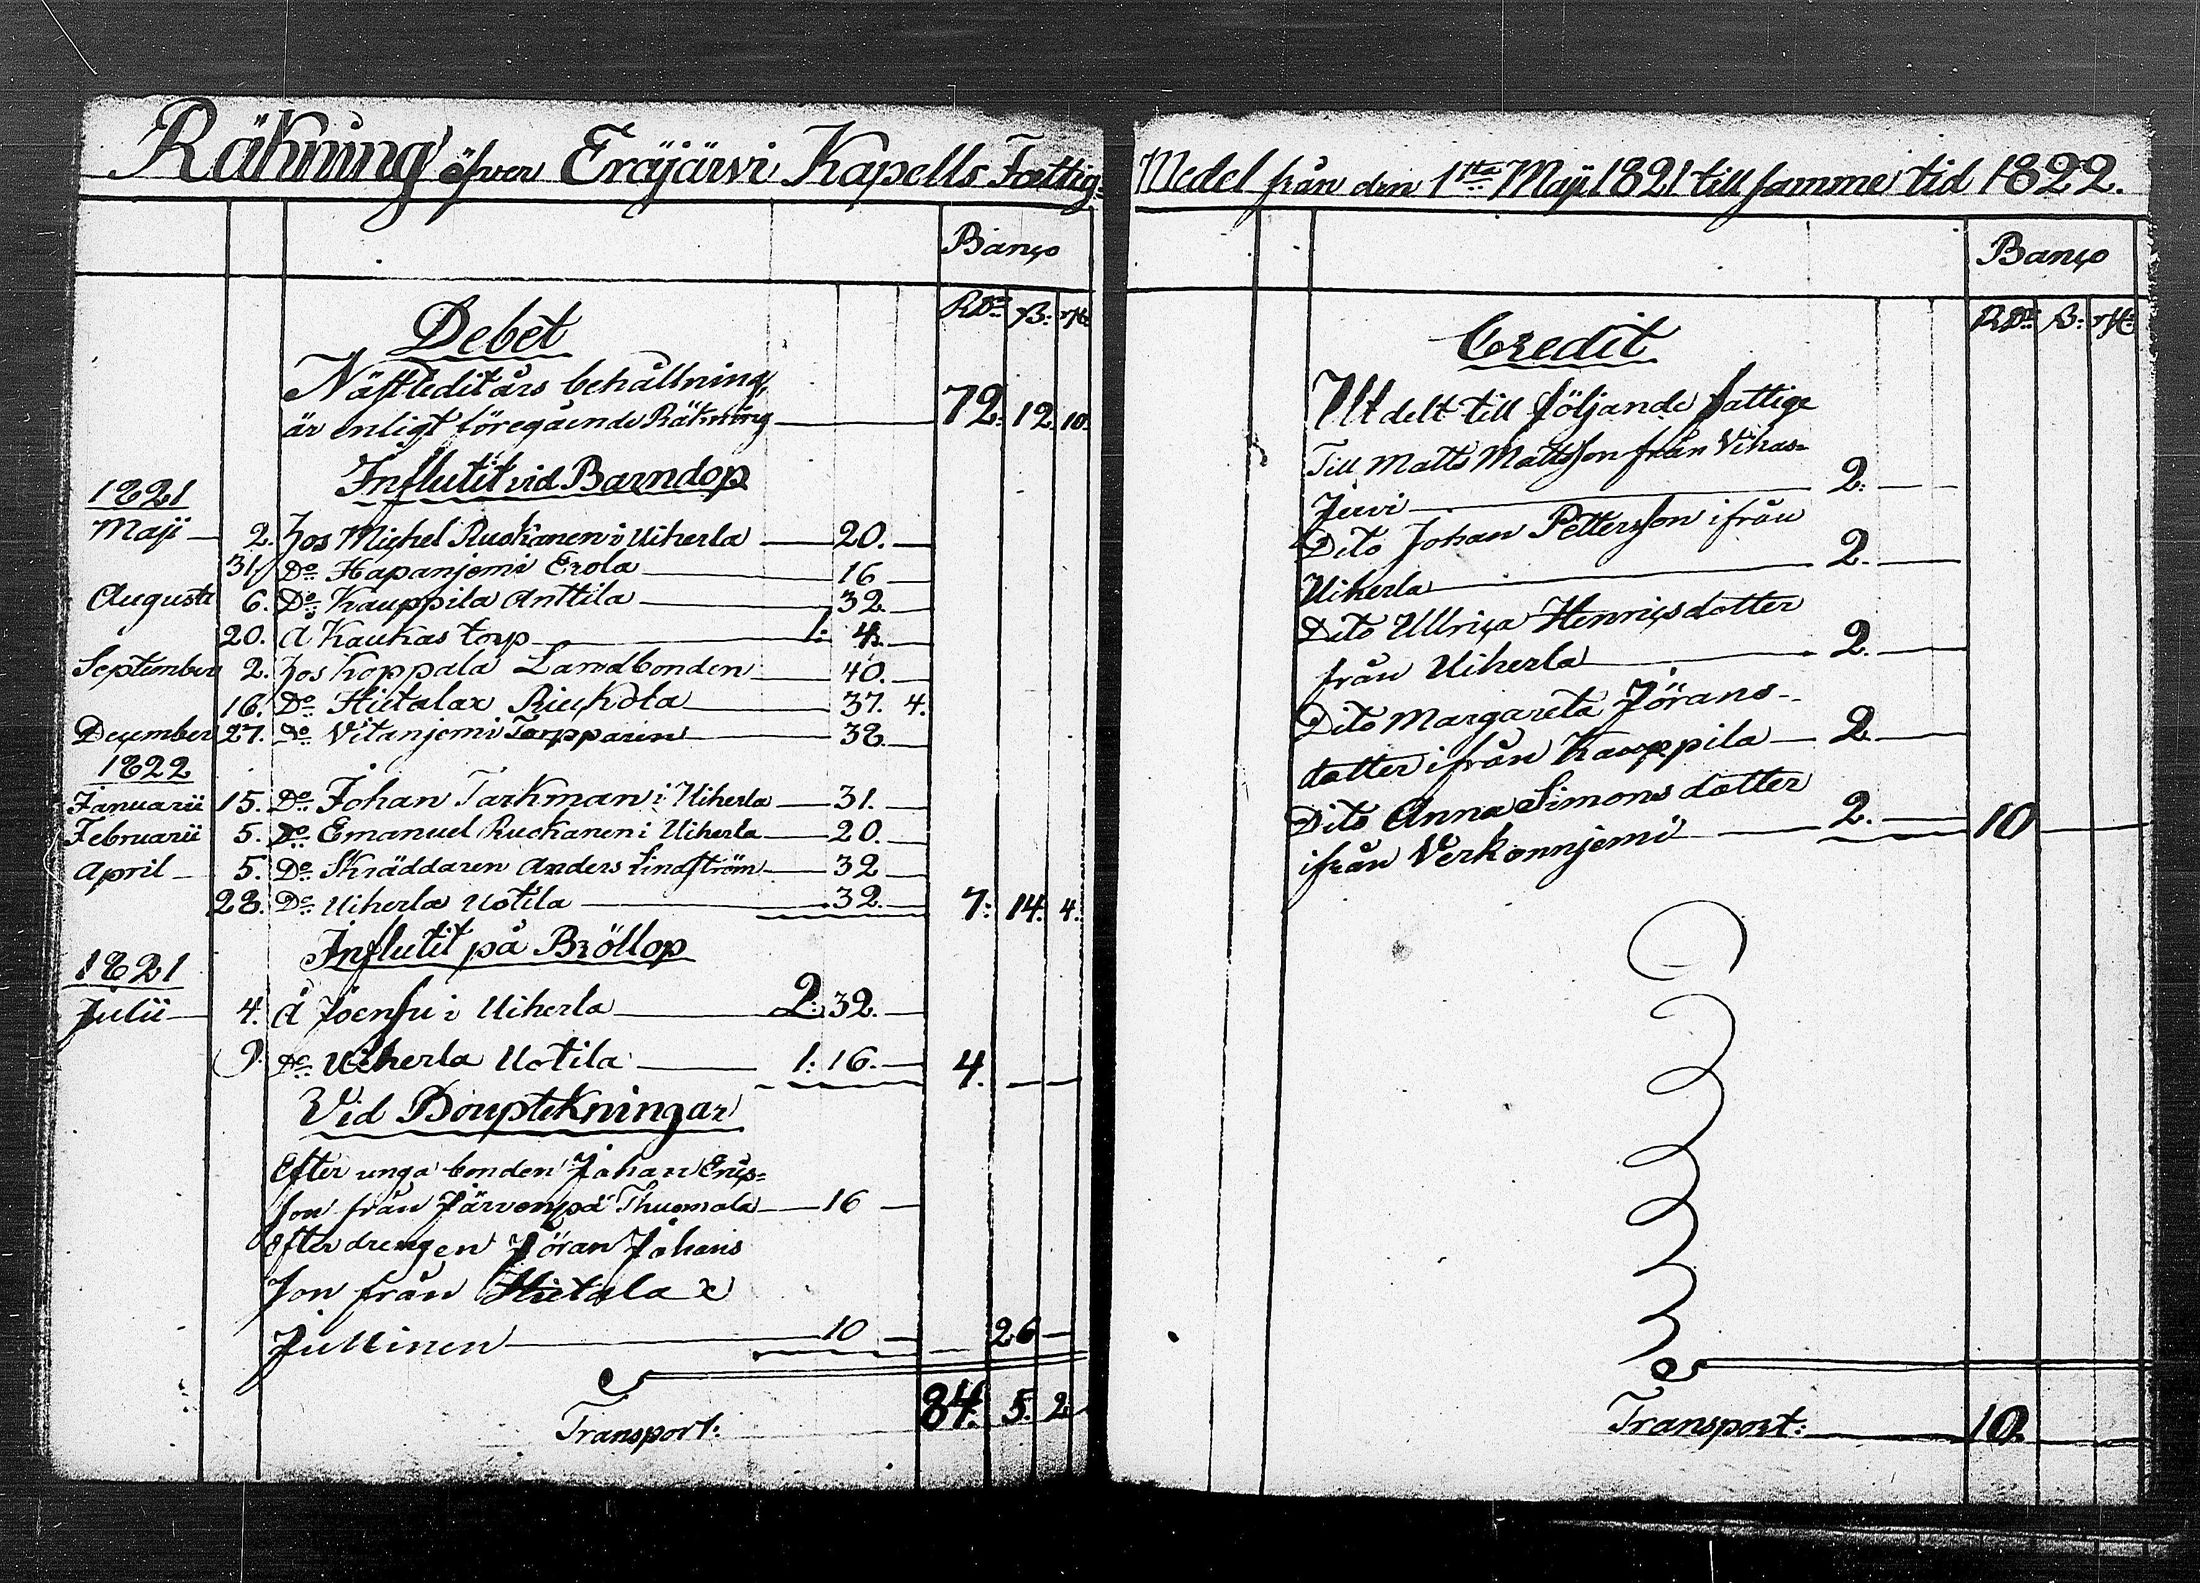 Räkning öfver Eräjärwi Kapells Fattig=
Banco
RD: ß: rst:
Debet
Nästledit års behållning,
är enligt föregående Räkning 72: 12. 10.
Influtit vid Barndop
1821
Maji 2. hos Michel Ruokanen i Uiherla 20.
31. Do Hapanjemi Erola 16
Augusti 6. Do Kauppila Anttila 32.
20. å Kaukas torp 1: 4.
September 2. hos Koppala Landbonden 40.
16. Do Hietalax 37. 4.
December 27. Do Vitanjemi Torpparen 38.
1822
Januarii 15. Do Johan Tarkman i Uiherla 31.
Februarii 5. Do Emanuel Ruokanen i Uiherla 20.
April 5. Do Skräddaren Anders Lindström 32
28. Do Uiherla Uotila 32. 7: 14. 4.
Influtit på Bröllop
1821
Julii 4. å Joensu i Uiherla 2: 32.
9. Do Uiherla Uotila 1: 16. 4.
Vid Bouptekningar
Efter unga bonden Johan Erics=
son från Järvenpä Thuomala 16
Efter drengen Jöran Johans
son från Hietala x
Jullinen 10 26
Transport: 84. 5. 2
Medel från den 1sta Maji 1821 till samme tid 1822.
Banco
RD: ß: rst:
Credit
Utdelt till följande fattige
Till Matts Mattsson från Vihas=
jervi 2.
Dito Johan Pettersson ifrån
Uiherla 2.
Dito Ullrica Henricsdotter
från Uiherla 2.
Dito Margareta Jörans-
dotter ifrån Kauppila 2
Dito Anna Simons dotter
ifrån Verkonnjemi 2. 10
Transport: 10.